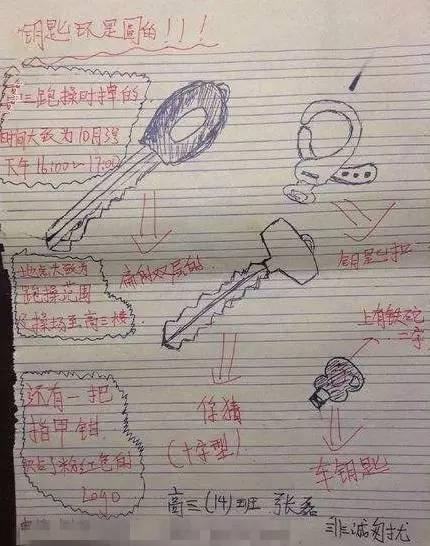 钥匙环是圆的!!!
高三跑操时掉的
时间大致为10月3号
下午16:00~17:00
地点大致为
跑操范围
及操场至高三楼
扁的双层的
钥匙扣
上有铁砣
二字
还有一把
指甲钳
印了粉红色的
Logo
你猜
(十字型)
车钥匙
高三(14)班 张磊
非诚勿扰